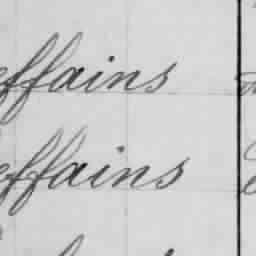 effains
effains